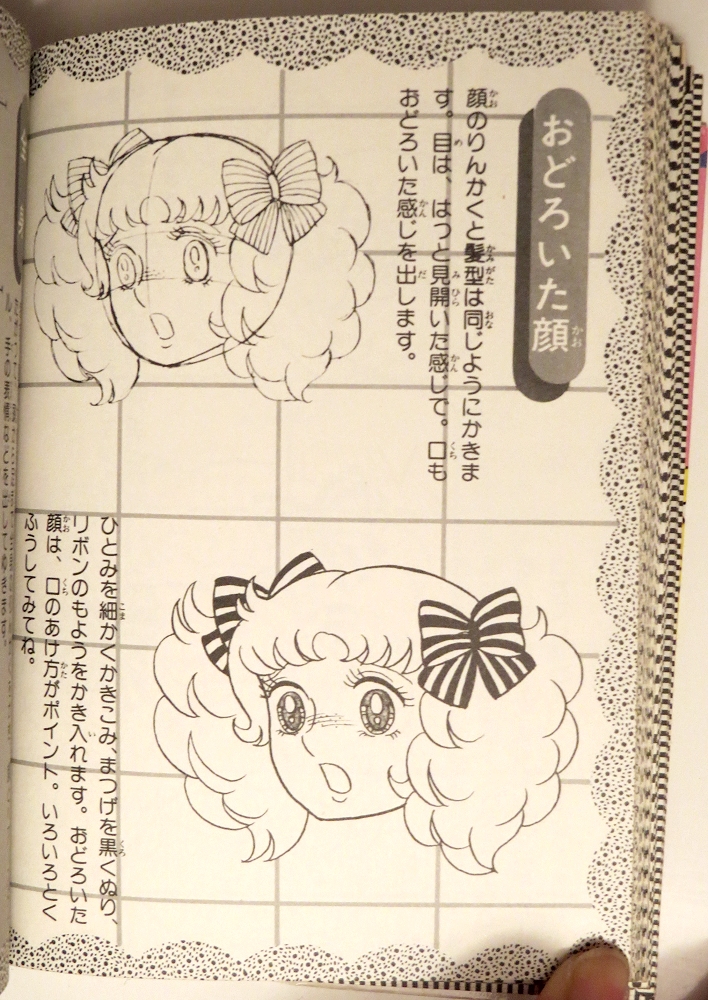 おどろいた顔
顔のりんかくと髪型は同じようにかきま
す。目は、はっと見開いた感じで。口も
おどろいた感じを出します。
ひとみを細かくかきこみ、まつげを黒くぬり、
リボンのもようをかき入れます。おどろいた
顔は、口のあけ方がポイント。いろいろとく
ふうしてみてね。